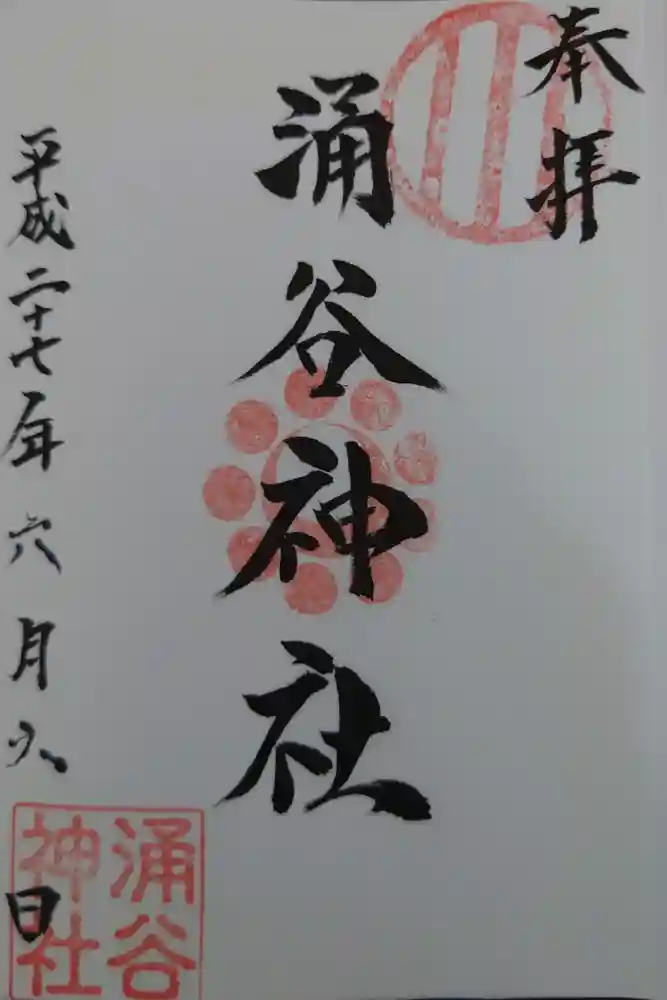 奉拝
涌谷神社
平成二十七年六月 日
涌谷
神社